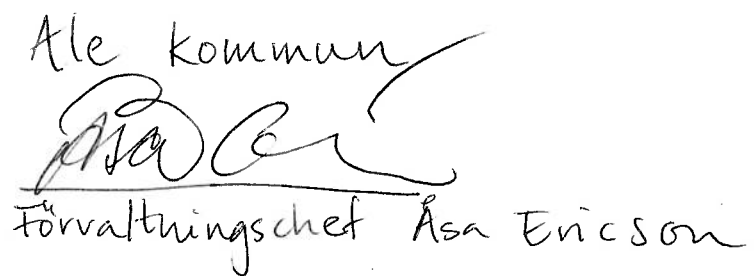 Ale kommun
Åsa
Förvaltningschef Åsa Ericson